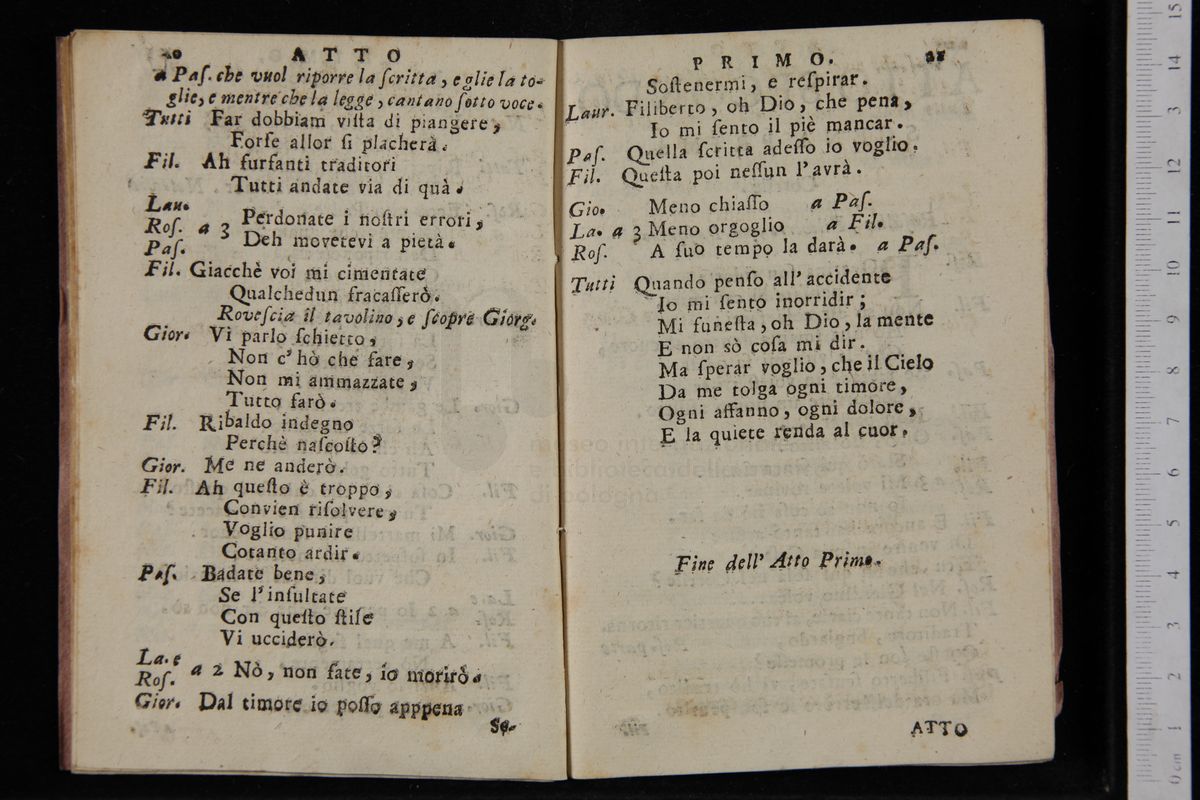 20 ATTO
a Paſ. che vuol riporre la ſcritta, e glie la to-
glie, e mentre che la legge, cantano ſotto voce.
Tutti Far dobbiam viſta di piangere,
Forſe allor ſi placherà.
Fil. Ah furfanti traditori
Tutti andate via di quà.
Lau.
Roſ. a 3 Perdonate i noſtri errori,
Paſ. Deh movetevi a pietà.
Fil. Giacchè voi mi cimentate
Qualchedun fracaſſerò.
Roveſcia il tavolino, e ſcopre Giorg.
Gior. Vi parlo ſchietto,
Non c'hò che fare,
Non mi ammazzate,
Tutto farò.
Fil. Ribaldo indegno
Perchè naſcoſto?
Gior. Me ne anderò.
Fil. Ah queſto è troppo,
Convien riſolvere,
Voglio punire
Cotanto ardir.
Paſ. Badate bene,
Se l'inſultate
Con queſto ſtile
Vi ucciderò.
La. e
Roſ. a 2 Nò, non fate, io morirò.
Gior. Dal timore io poſſo apppena
So-
PRIMO. 21
Soſtenermi, e reſpirar.
Laur. Filiberto, oh Dio, che pena,
Io mi ſento il piè mancar.
Paſ. Quella ſcritta adeſſo io voglio.
Fil. Queſta poi neſſun l'avrà.
Gio. Meno chiaſſo a Paſ.
La. a 3 Meno orgoglio a Fil.
Roſ. A ſuo tempo la darà. a Paſ.
Tutti Quando penſo all'accidente
Io mi ſento inorridir;
Mi funeſta, oh Dio, la mente
E non sò coſa mi dir.
Ma ſperar voglio, che il Cielo
Da me tolga ogni timore,
Ogni affanno, ogni dolore,
E la quiete renda al cuor.
Fine dell' Atto Primo.
ATTO